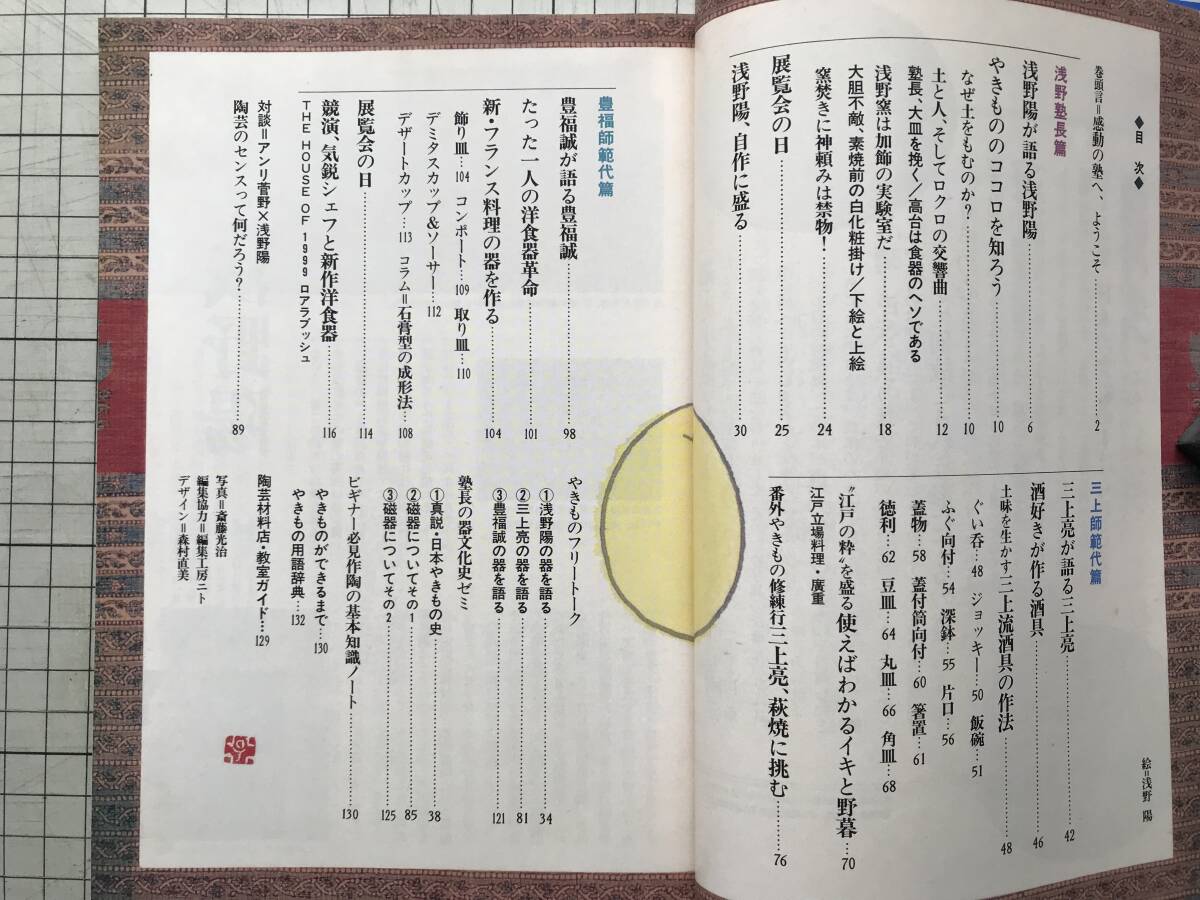 ◆目 次◆
巻頭言=感動の塾へ、ようこそ……2
浅野塾長篇
浅野陽が語る浅野陽……6
やきもののココロを知ろう……10
なぜ土をもむのか?……10
土と人、そしてロクロの交響曲……12
塾長、大皿を挽く/高台は食器のヘソである
浅野窯は加飾の実験室だ……18
大胆不敵、素焼前の白化粧掛け/下絵と上絵
窯焚きに神頼みは禁物!……24
展覧会の日……25
浅野陽、自作に盛る……30
絵=浅野 陽
三上師範代篇
三上亮が語る三上亮……42
酒好きが作る酒具……46
土味を生かす三上流酒具の作法……48
ぐい呑…48 ジョッキー…50 飯碗…51
ふぐ向付…54 深鉢…55 片口…56
蓋物…58 蓋付筒向付…60 箸置…61
徳利…62 豆皿…64 丸皿…66 角皿…68
〝江戸の粋〟を盛る使えばわかるイキと野暮…70
江戸立場料理・廣重
番外やきもの修練行三上亮、萩焼に挑む……76
豊福師範代篇
豊福誠が語る豊福誠……98
たった一人の洋食器革命……101
新・フランス料理の器を作る……104
飾り皿…104 コンポート…109 取り皿…110
デミタスカップ&ソーサー…112
デザートカップ…113 コラム=石膏型の成形法…108
展覧会の日……114
競演、気鋭シェフと新作洋食器……116
THE HOUSE OF 1999 ロアラブッシュ
対談=アンリ菅野×浅野陽
陶芸のセンスって何だろう?……89
やきものフリートーク
①浅野陽の器を語る……34
②三上亮の器を語る……81
③豊福誠の器を語る……121
塾長の器文化史ゼミ
①真説・日本やきもの史……38
②磁器についてその1……85
③磁器についてその2……125
ビギナー必見作陶の基本知識ノート……130
やきものができるまで…130
やきもの用語辞典…132
陶芸材料店・教室ガイド…129
写真=斎藤光治
編集協力=編集工房ニト
デザイン=森村直美